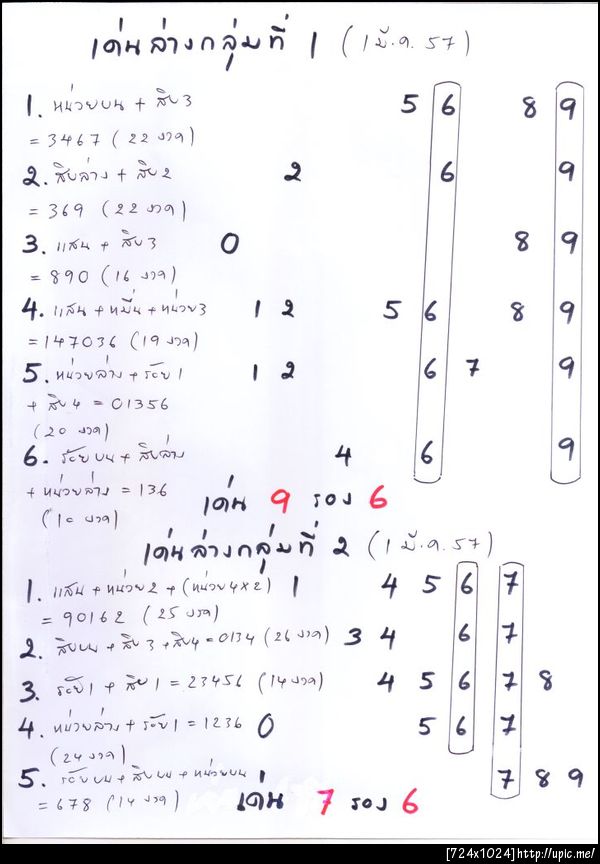 เด่นล่างกลุ่มที่ 1 (1 มี.ค. 57)
1. หน่วยบน + สิบ3 5 6 8 9
= 3467 (22 งวด)
2. สิบล่าง + สิบ2 2 6 9
= 369 (22 งวด)
3. แสน + สิบ3 0 8 9
= 890 (16 งวด)
4. แสน + หมื่น + หน่วย3 1 2 5 6 8 9
= 147036 (19 งวด)
5. หน่วยล่าง + ร้อย1 1 2 6 7 9
+ สิบ4 = 01356
(20 งวด)
6. ร้อยบน + สิบล่าง 4 6 9
+ หน่วยล่าง = 136
(10 งวด)
เด่น 9 รอง 6
เด่นล่างกลุ่มที่ 2 (1 มี.ค. 57)
1. แสน + หน่วย2 + (หน่วย4x2) 1 4 5 6 7
= 90162 (25 งวด)
2. สิบบน + สิบ3 + สิบ4 = 0134 (26 งวด) 3 4 6 7
3. ร้อย1 + สิบ1 = 23456 (14 งวด) 4 5 6 7 8
4. หน่วยล่าง + ร้อย1 = 1236 0 5 6 7
(24 งวด)
5. ร้อยบน + สิบบน + หน่วยบน 7 8 9
= 678 (14 งวด)
เด่น 7 รอง 6
[724x1024]http://upic.me/